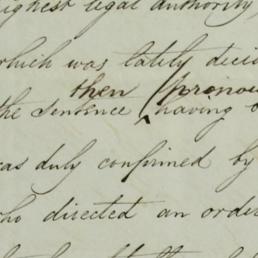 highest legal authority,
which was lately deci
then pronou
the sentence having b
was duly confirmed by
who directed an order